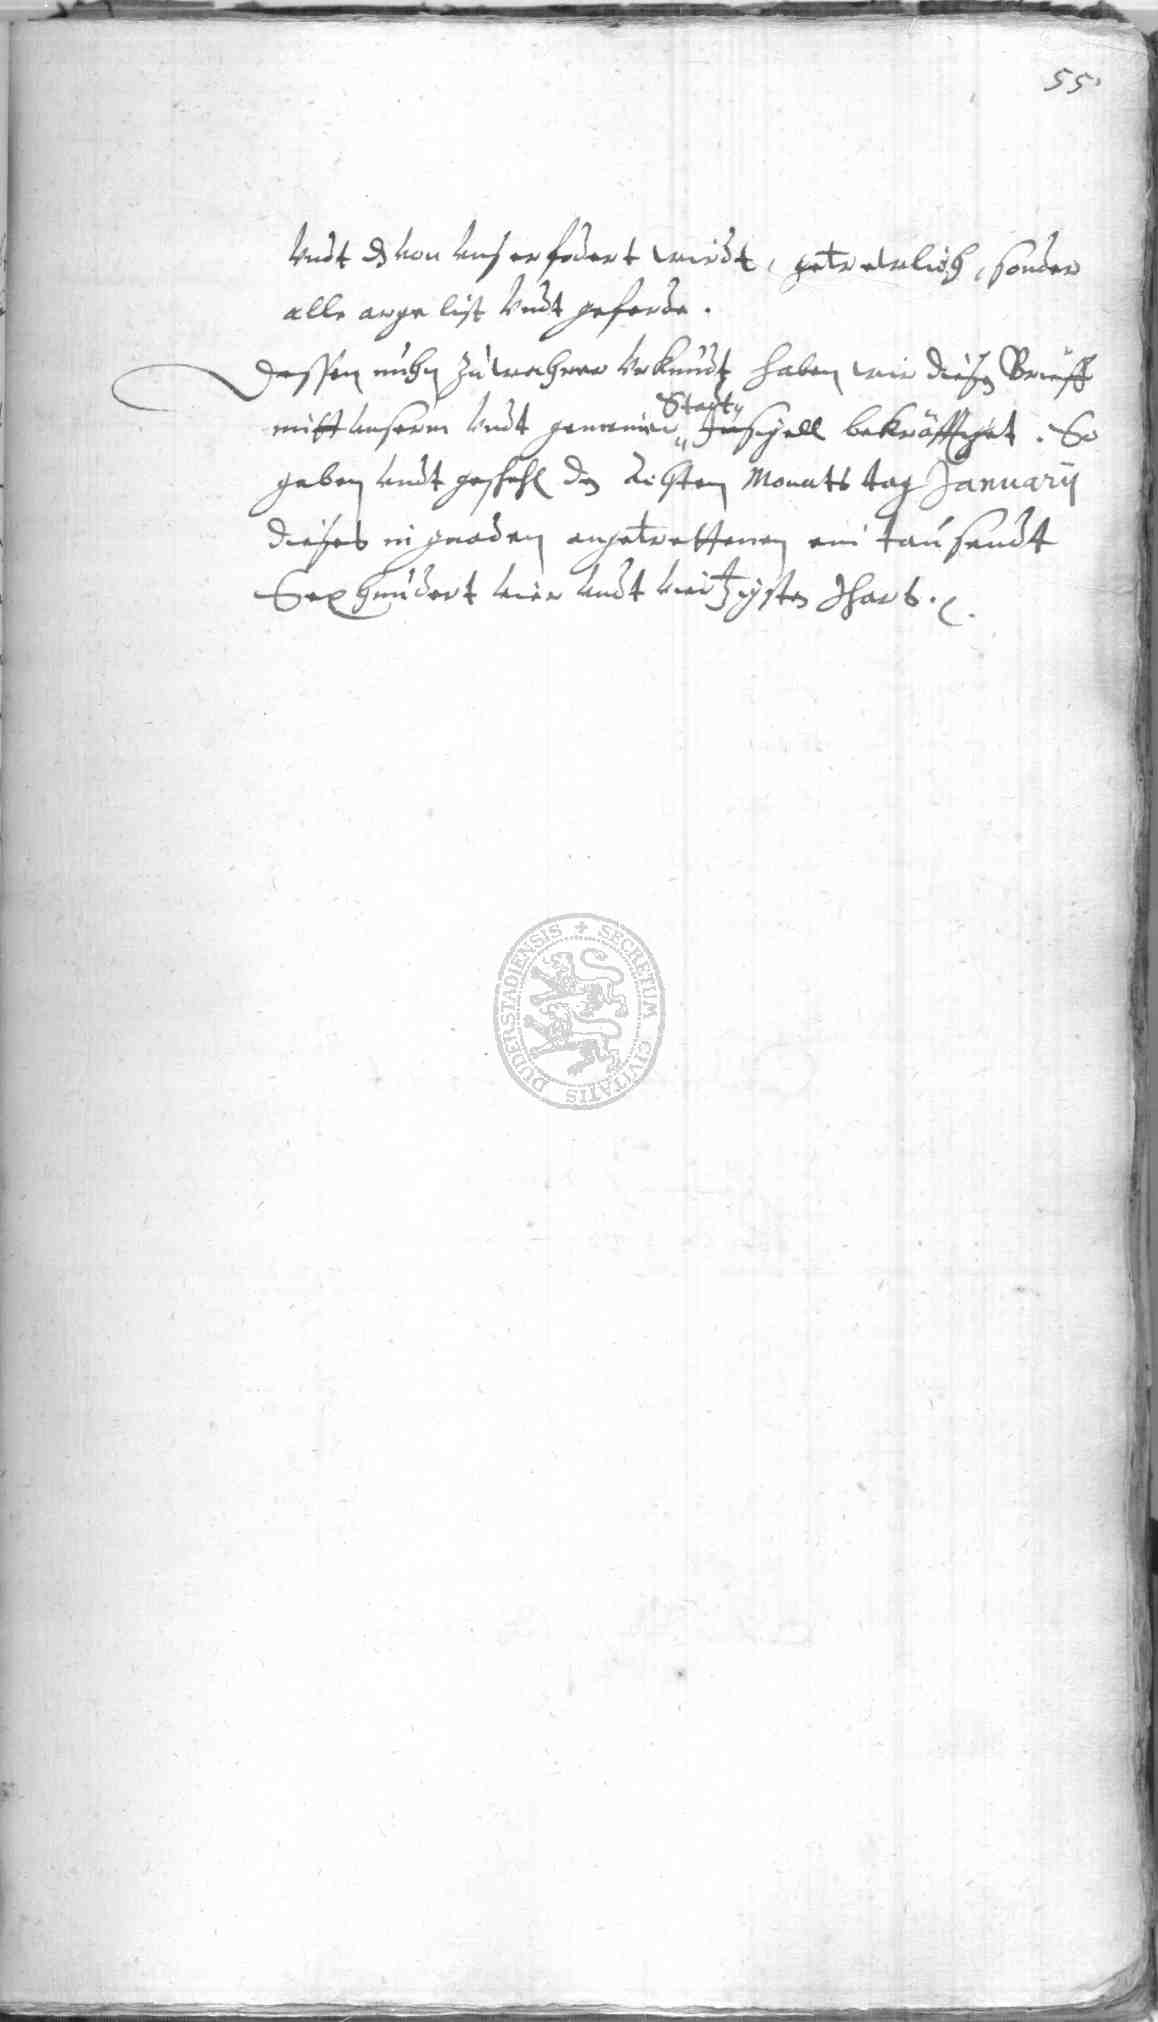 55.
Vndt ds von vnß erfodert wirdt, getrewlich, sonder
alle arge list Vndt geferde.
Dessen nuhn zu wahrer Vrkundt haben wir diesen Brieff
mitt vnserm Vndt gemeiner
Stadt
Insigell bekräfftiget. So
geben vndt geschehn den Monats tag January
dieses in gnaden angetrettenen ein tausendt
Sexhundert vier vndt viertzigsten Jhars.
DUDERSTADIENSIS + SECRETUM CIVITATIS